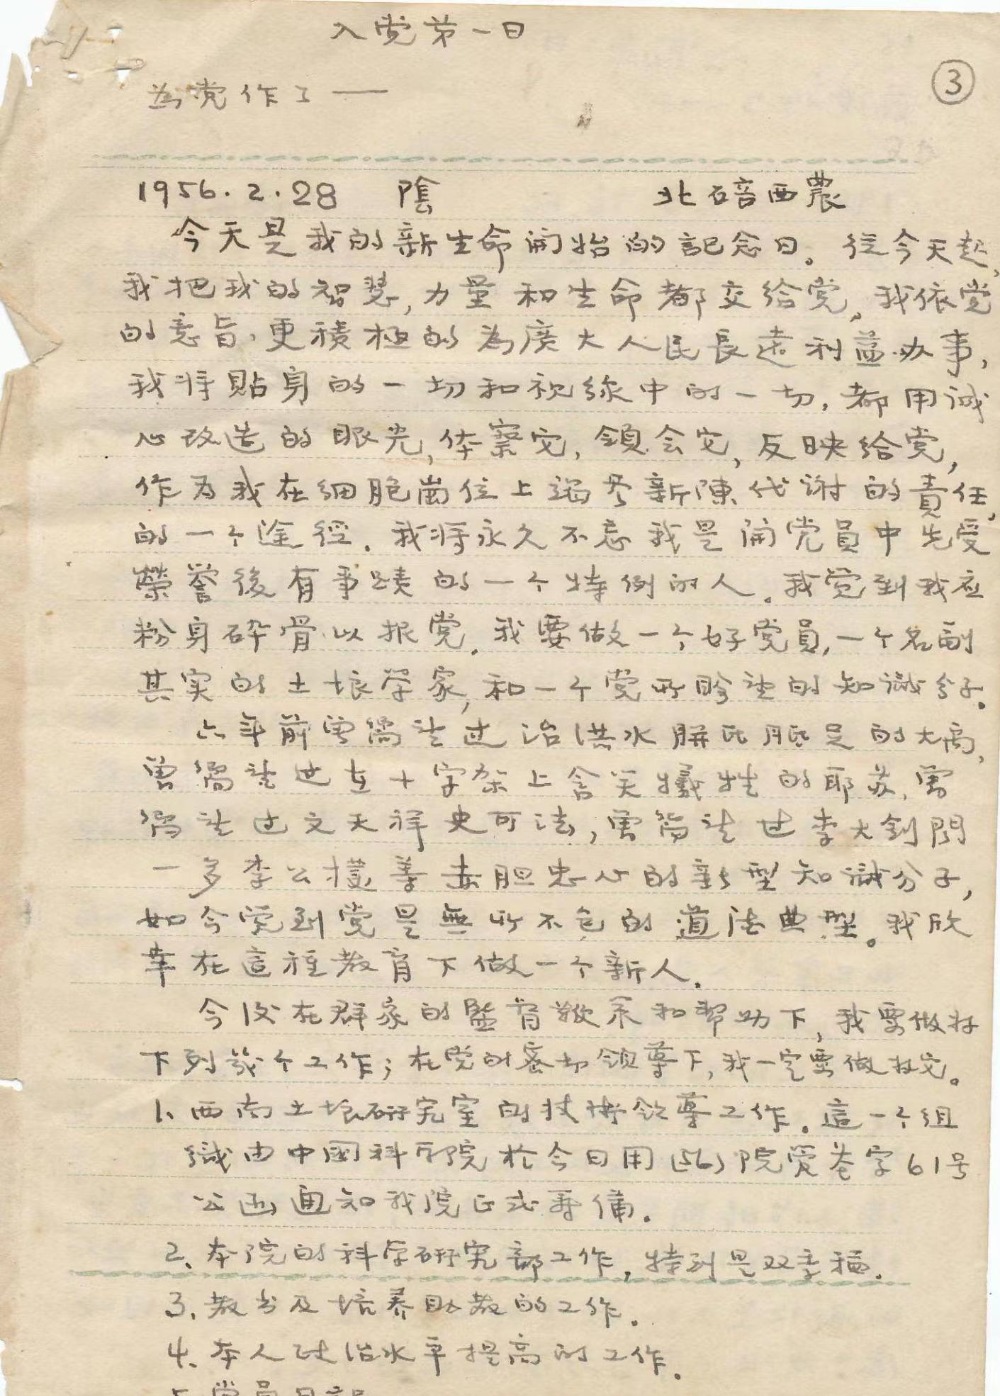 入党第一日
為党作工——
③
1956.2.28 陰 北碚西農
今天是我的新生命開始的記念日。從今天起,
我把我的智慧,力量和生命都交給党,我依党
的意旨,更積極的為廣大人民長遠利益办事,
我将貼身的一切和視線中的一切,都用誠
心改造的眼光,体察它,領会它,反映給党,
作为我在細胞崗位上過参新陳代谢的責任,
的一个途徑。我将永久不忘我是開党員中先受
榮誉後有事蹟的一个特例的人。我觉到我应
粉身碎骨以报党。我要做一个好党員,一个名副
其实的土壤学家,和一个党所盼望的知識分子。
六年前曾仿法过治洪水胼胝足的大禹,
曾仿法过在十字架上含笑犧牲的耶苏,曾
仿法过文天祥史可法,曾仿法过李大釗聞
一多李公樸等赤胆忠心的新型知識分子,
如今觉到党是無所不包的道德典型。我欣
幸在這種教育下做一个新人。
今后在群众的監督鞭策和帮助下,我要做好
下列幾个工作;在党的密切領導下,我一定要做好它。
1、西南土壤研究室的技術領導工作。這一个组
織由中國科学院於今日用(56)院字61号
公函通知我院正式籌備。
2、本院的科学研究部工作,特别是双季稻。
3、教书及培养助教的工作。
4、本人政治水平提高的工作。
5、党員